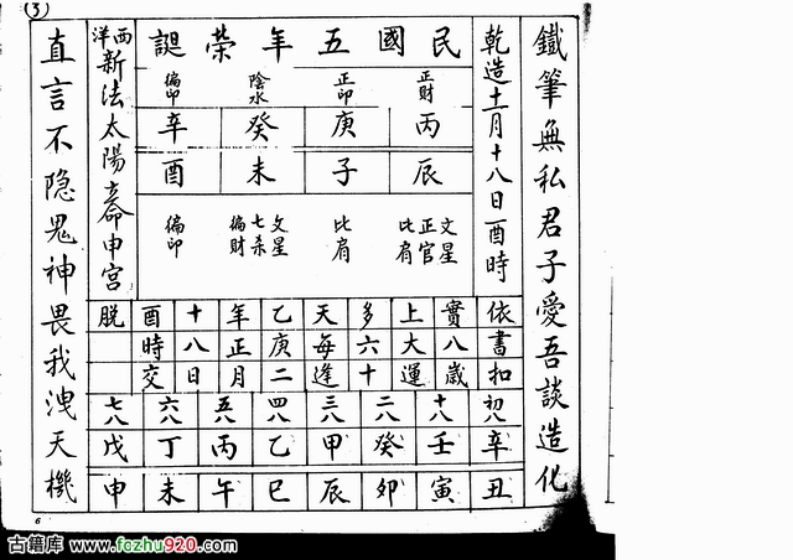 (3)
鐵筆無私君子愛吾談造化
乾造十一月十八日酉時
民國五年榮誕
正財
正印
陰水
偏印
丙庚癸辛
辰子未酉
文星
正官
比肩
比肩
文星
七杀
偏財
偏印
西洋新法太陽立命申宮
依書扣
實八歲
上大運
多六十
天每逢
乙庚二
年正月
十八日
酉時交
脱
初八
十八
二八
三八
四八
五八
六八
七八
辛壬癸甲乙丙丁戊
丑寅卯辰巳午未申
直言不隐鬼神畏我洩天機
6
古籍库 www.fozhu920.com